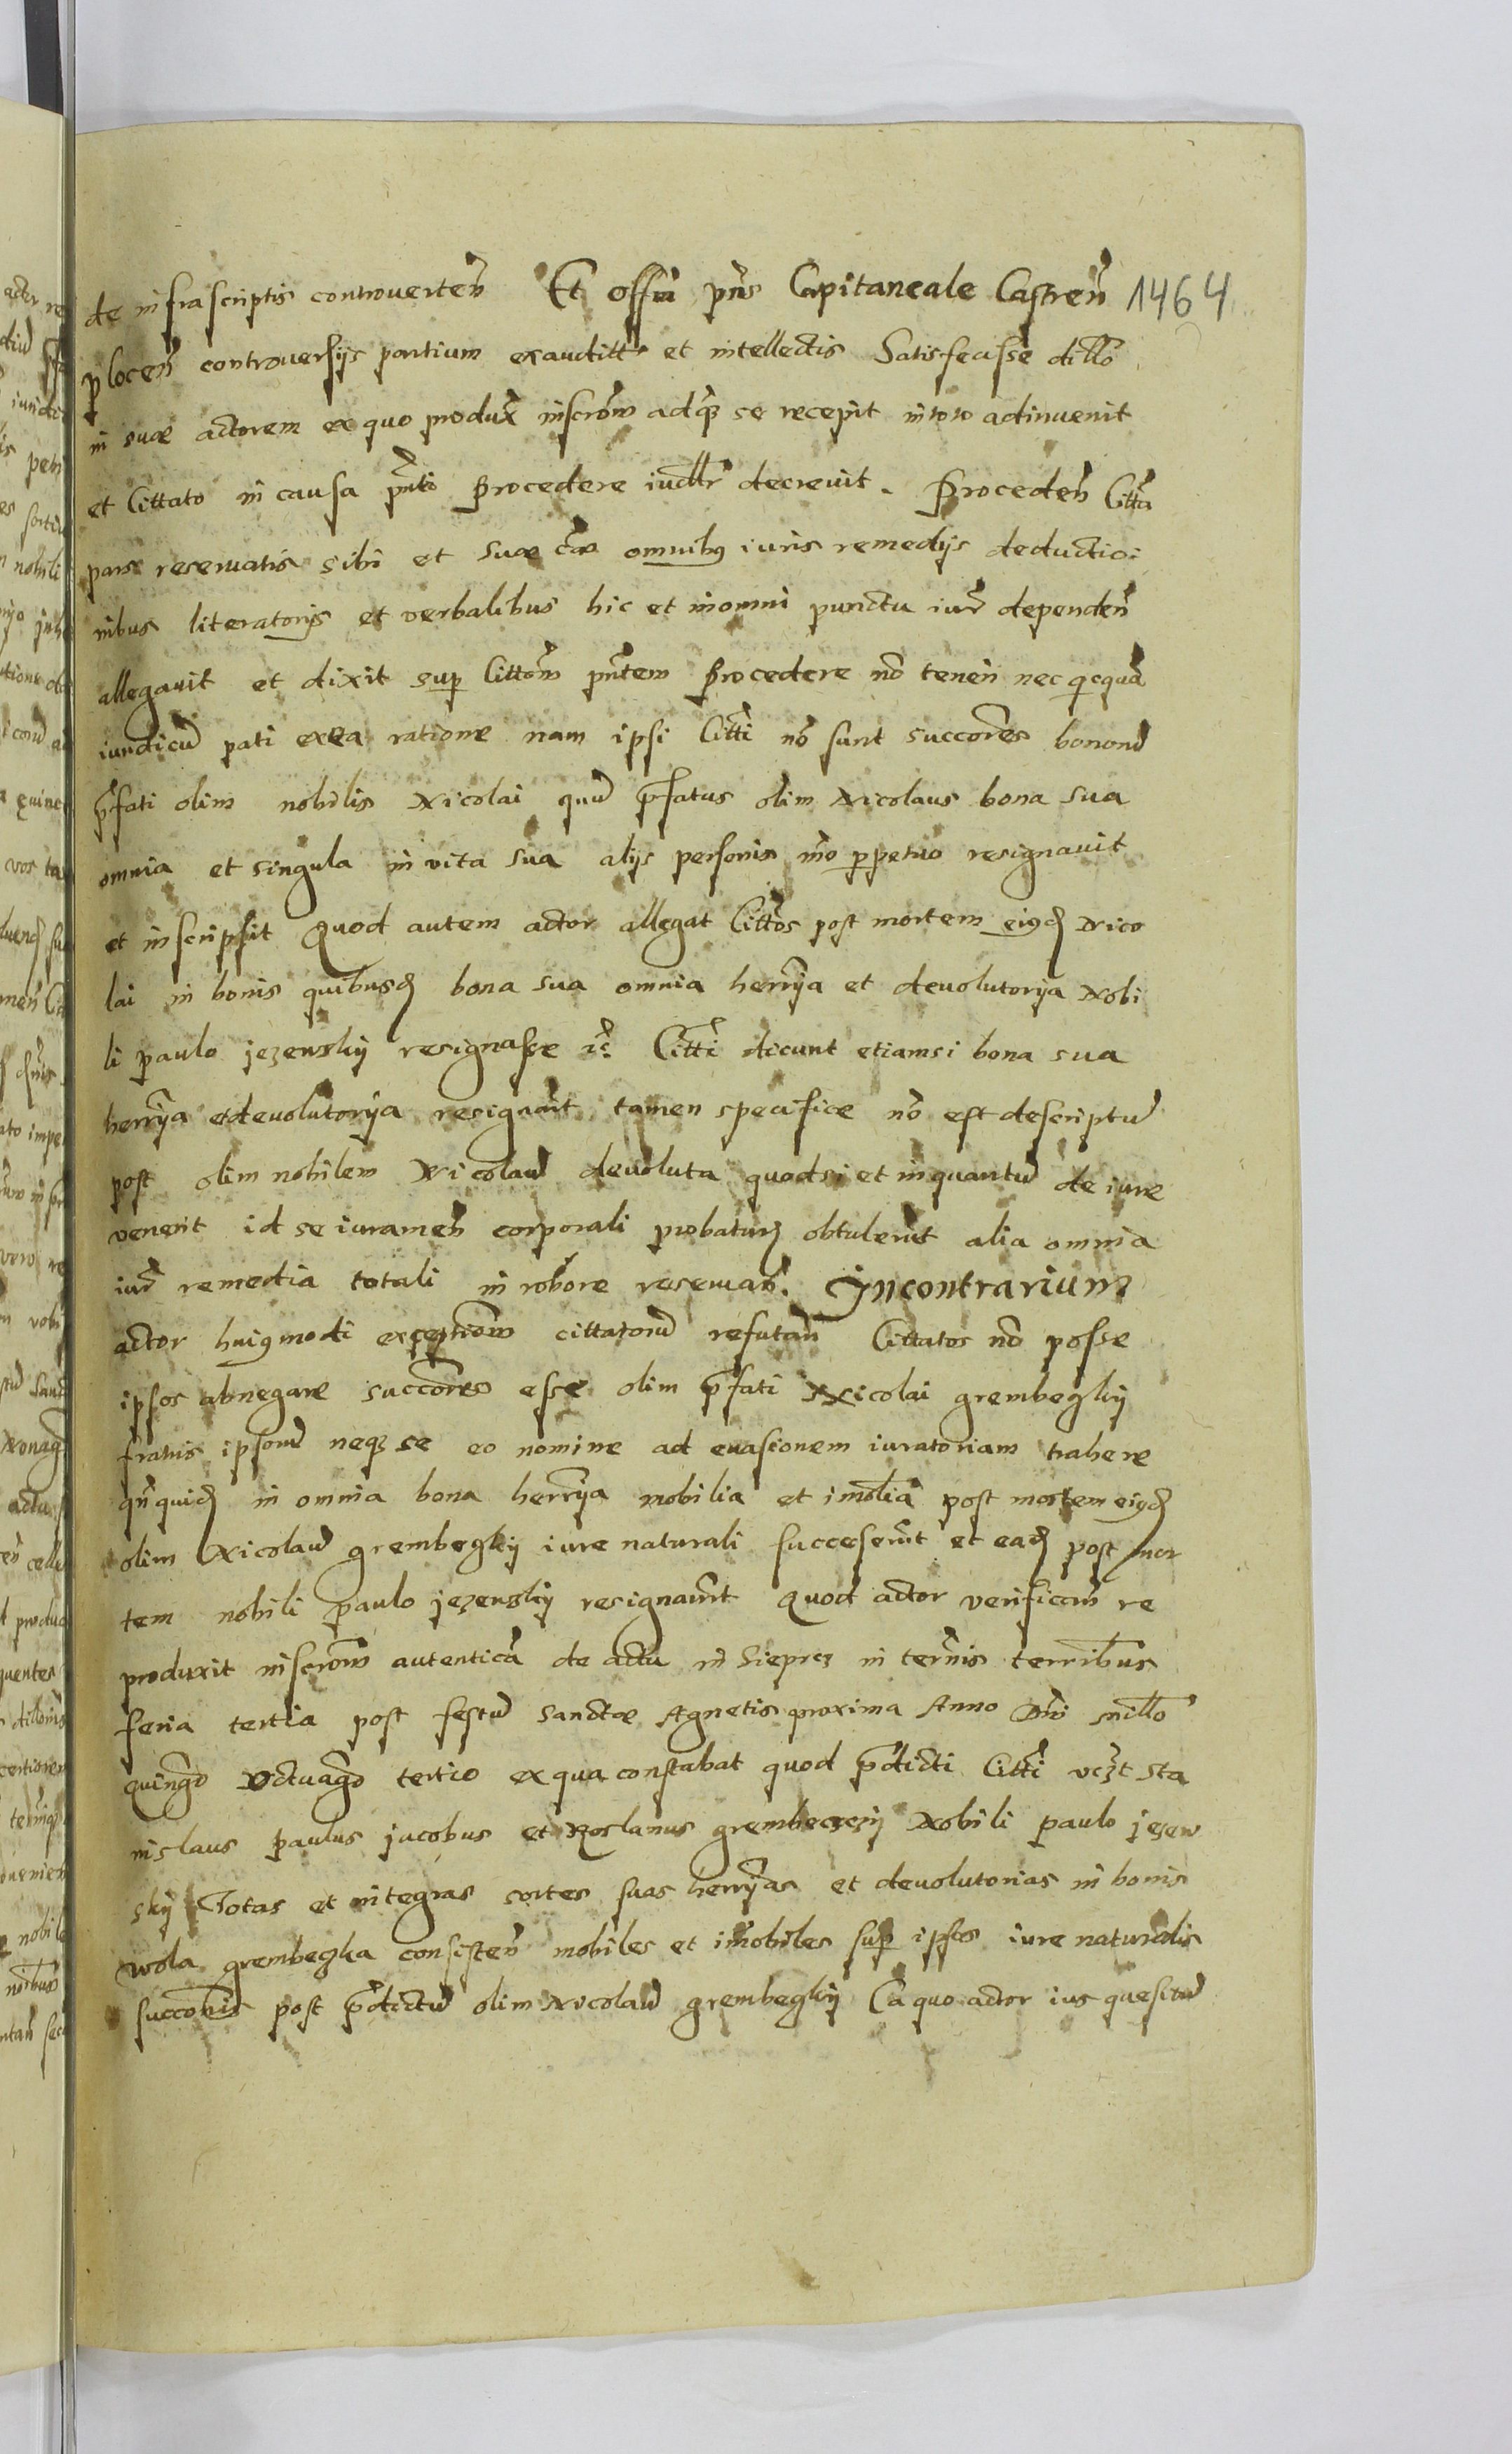 de infrascriptis controverten Et offm pns Capitaneale Castren 1464
plocen controversijs partium exauditis et intellectis Satisfecisse dillo
in suae actorem ex quo produx inscrom adqz se recepit in toto adinvenit
et Cittato in causa pnti procedere iudlr decrevit. Proceden Citta
pars reservatis sibi et suae cae omnibus iuris remedijs deductio
nibus literatorijs et verbalibus hic et in omni punctu iur dependen
allegavit et dixit sup Cittom pntem procedere no teneri nec qcqua
iuridicu pati ex ea ratione nam ipsi Citti no sunt succores bonoru
pfati olim nobilis Nicolai quu pfatus olim Nicolaus bona sua
omnia et singula in vita sua alijs personis mo ppetuo resignavit
et inscripsit Quod autem actor allegat Cittos post mortem eiusd Nico
lai in bonis quibusd bona sua omnia herrija et devolutorija Nobi
li paulo jezewskij resignasse Citti dicunt etiamsi bona sua
herrija et devolutorija resignarit tamen specifice no est descriptu
post olim nobilem Nicolau devoluta quodsi et inquantu de iure
venerit id se iuramen corporali probatur obtulerut alia omnia
iur remedia totali in robore reservan. Incontrarium
actor huiusmodi excepnom cittatoru refutan Cittatos no posse
ipsos abnegare succores esse olim pfati Nicolai grembeczkij
fratris ipsoru neqz se eo nomine ad evasionem iuratoriam trahere
qnquid in omnia bona herrija mobilia et imolia post mortem eiusd
olim Nicolau grembeczkij iure naturali succeserut et ead post mor
tem nobili paulo jezewskij resignarut Quod actor verifican re
produxit inscrom autentica de actu in Sieprcz in termis terribus
feria tertia post festu sanctae Agnetis proxima Anno Dni millo
quingo octuago tertio ex qua constabat quod pdicti Citti vczt Sta
nislaus paulus jacobus et Roslanus grembeczczij Nobili paulo jezew
skij Totas et integras sortes suas herrijas et devolutorias in bonis
wola grembeczka consisten mobiles et imobiles sup ipsos iure naturalis
succonis post pdictu olim Nicolau grembeczkij Ca quo actor ius quesitu